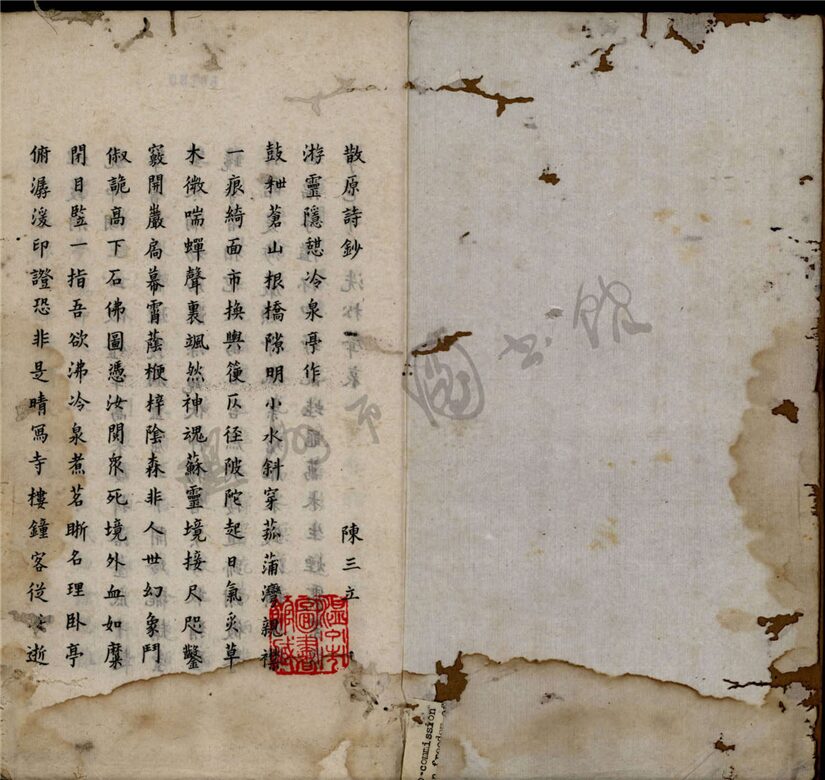 散原詩鈔 陳三立
游靈隱憇冷泉亭作
鼓枻蒼山根橋隙明小水斜穿菰蒲灣親
一痕綺面市換輿篗仄徑陂陀起日氣炙草
木微喘蟬聲裏颯然神魂蘇靈境接尺咫鑿
竅開巖扃幕霄蔭楩梓陰森非人世幻象鬥
俶詭高下石佛圖憑汝閱衆死境外血如糜
閉目豎一指吾欲沸冷泉煮茗晰名理卧亭
俯潺湲印證恐非是晴寫寺樓鐘客從逝
溫州市
圖書
館藏
溫州市圖書館
commission